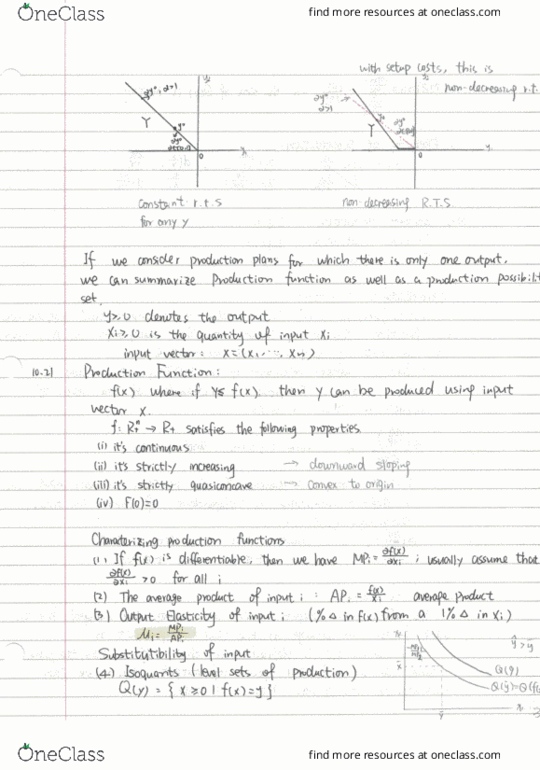 OneClass
find more resources at oneclass.com
with setup costs, this is
non-decreasing r.t.
Y
Y
0
constant r.t.s
for any y
non-decreasing R.T.S
If we consider production plans for which there is only one output,
we can summarize Production function as well as a production possibilit
set.
y≥0 denotes the output
Xi≥0 is the quantity of input Xi
input vector: X=(X1, ..., Xn)
10.21
Production Function:
f(x) where if y≤f(x), then y can be produced using input
vector x.
f: R₊ⁿ → R₊ satisfies the following properties
(i) it's continuous
(ii) it's strictly increasing → downward sloping
(iii) it's strictly quasiconcave → convex to origin
(iv) F(0)=0
Charaterizing production functions
(1) If f(x) is differentiable, then we have MPi = ∂f(x)/∂xi ; usually assume that
∂f(x)/∂xi >0 for all i
(2) The average product of input i : APi = f(x)/xi average product
(3) Output Elasticity of input i (%Δ in f(x) from a 1%Δ in xi)
Mi = MPi/APi
Substitutibility of input
(4) Isoquants (level sets of production)
Q(y) = { x ≥ 0 | f(x)=y }
ŷ>y
Q(ŷ)
OneClass
find more resources at oneclass.com